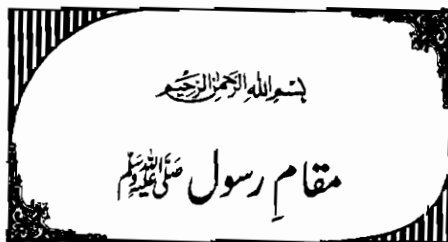 بسم الله الرحمن الرحيم
مقامِ رسول صلى الله عليه وسلم